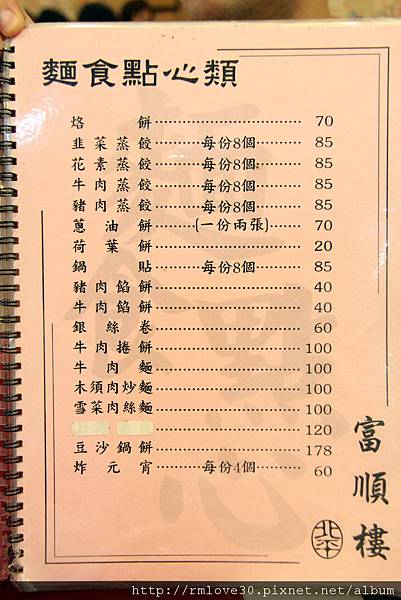 麵食點心類
烙餅 70
韭菜蒸餃 每份8個 85
花素蒸餃 每份8個 85
牛肉蒸餃 每份8個 85
豬肉蒸餃 每份8個 85
蔥油餅 (一份兩張) 70
荷葉餅 20
鍋貼 每份8個 85
豬肉餡餅 40
牛肉餡餅 40
銀絲卷 60
牛肉捲餅 100
牛肉麵 100
木須肉炒麵 100
雪菜肉絲麵 100
120
豆沙鍋餅 178
炸元宵 每份4個 60
富順樓
北平
http://rmlove30.pixnet.net/album